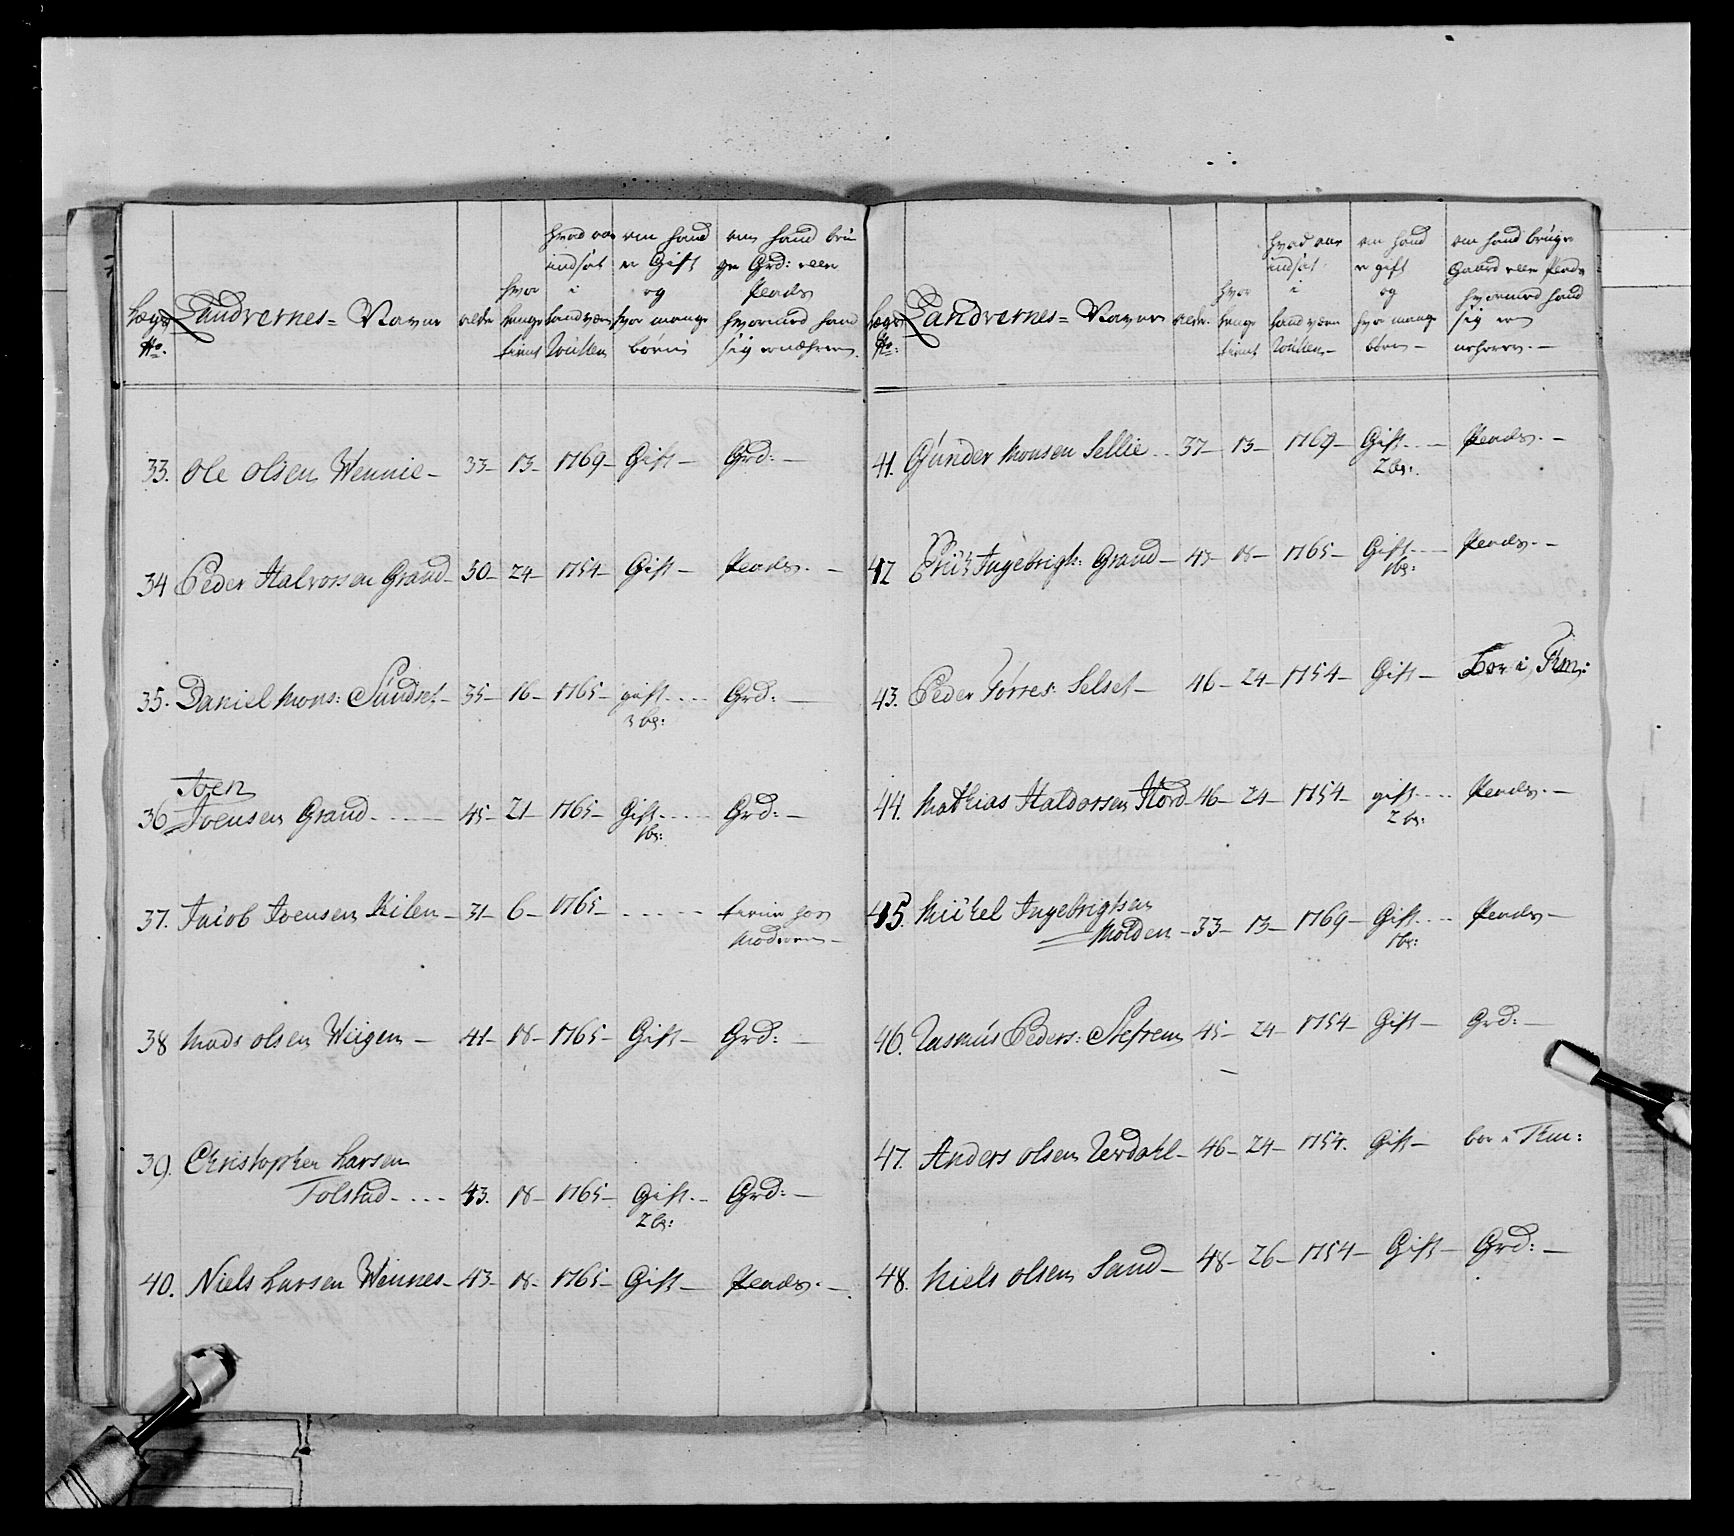 Lægs No: Landvernes = Navne alder hvor længe tient hvad aar indsat i Landværn Rullen om hand er Gift og hvor mange børn om hand bruger Grd: eller Plads hvormed hand sig ernærer.
33. Ole Olsen Wennie - 33 - 13 - 1769 - Gift - Grd: -
34 Peder Halvorsen Grand - 30 - 24 - 1754 - Gift - Plads. -
35. Daniel Mons: Sundset - 35 - 16 - 1765 - gift .... Grd: -
3 bø:
Joen
36 Joensen Grand ---- 45 - 21 - 1765 - Gift .... Grd: -
1 bø:
37. Jacob Joensen Kilen - 31 - 6 - 1765 - ----- tiener hos
Moderen -
38 Mads Olsen Wiigen - 41 - 18 - 1765 - Gift - Grd: -
39. Christopher Larsen
Tolstad .... 43. 18 - 1765 - Gift .- Grd: -
2 bø:
40. Niels Larsen Wennes - 43 - 18 - 1765 - Gift - Plads. -
Lægs No: Landvernes = Navne alder. hvor længe tient hvad aar indsat i Landværn Rullen - om hand er gift og hvor mange børn - om hand bruger Gaard eller Plads hvormed hand sig ernærer. -
41. Gunder Monsen Sellie .. 37 - 13 - 1769 - Gift .. - Plads. -
2 bø:
42 Erik Ingebrigts: Grand - 43 - 18 - 1765 - Gift .. - Plads. -
1 bø:
43. Peder Torres: Selset - 46 - 24 - 1754 - Gift - Boer i Ttm:
44. Mathias Haldorsen Hord 46 - 24 - 1754 - gift .... Plads. -
2 bø:
45. Mikel Ingebrigtsen
Molden - 33 - 13 - 1769 - Gift .... Plads -
1 bø:
46. Rasmus Peders: Slefrem 45 - 24 - 1754 - Gift - Grd: -
47. Anders Olsen Werdahl - 46 - 24 - 1754. Gift - boer i Ttm:
48. Niels Olsen Sand - 48 - 26 - 1754 - Gift - Grd: -